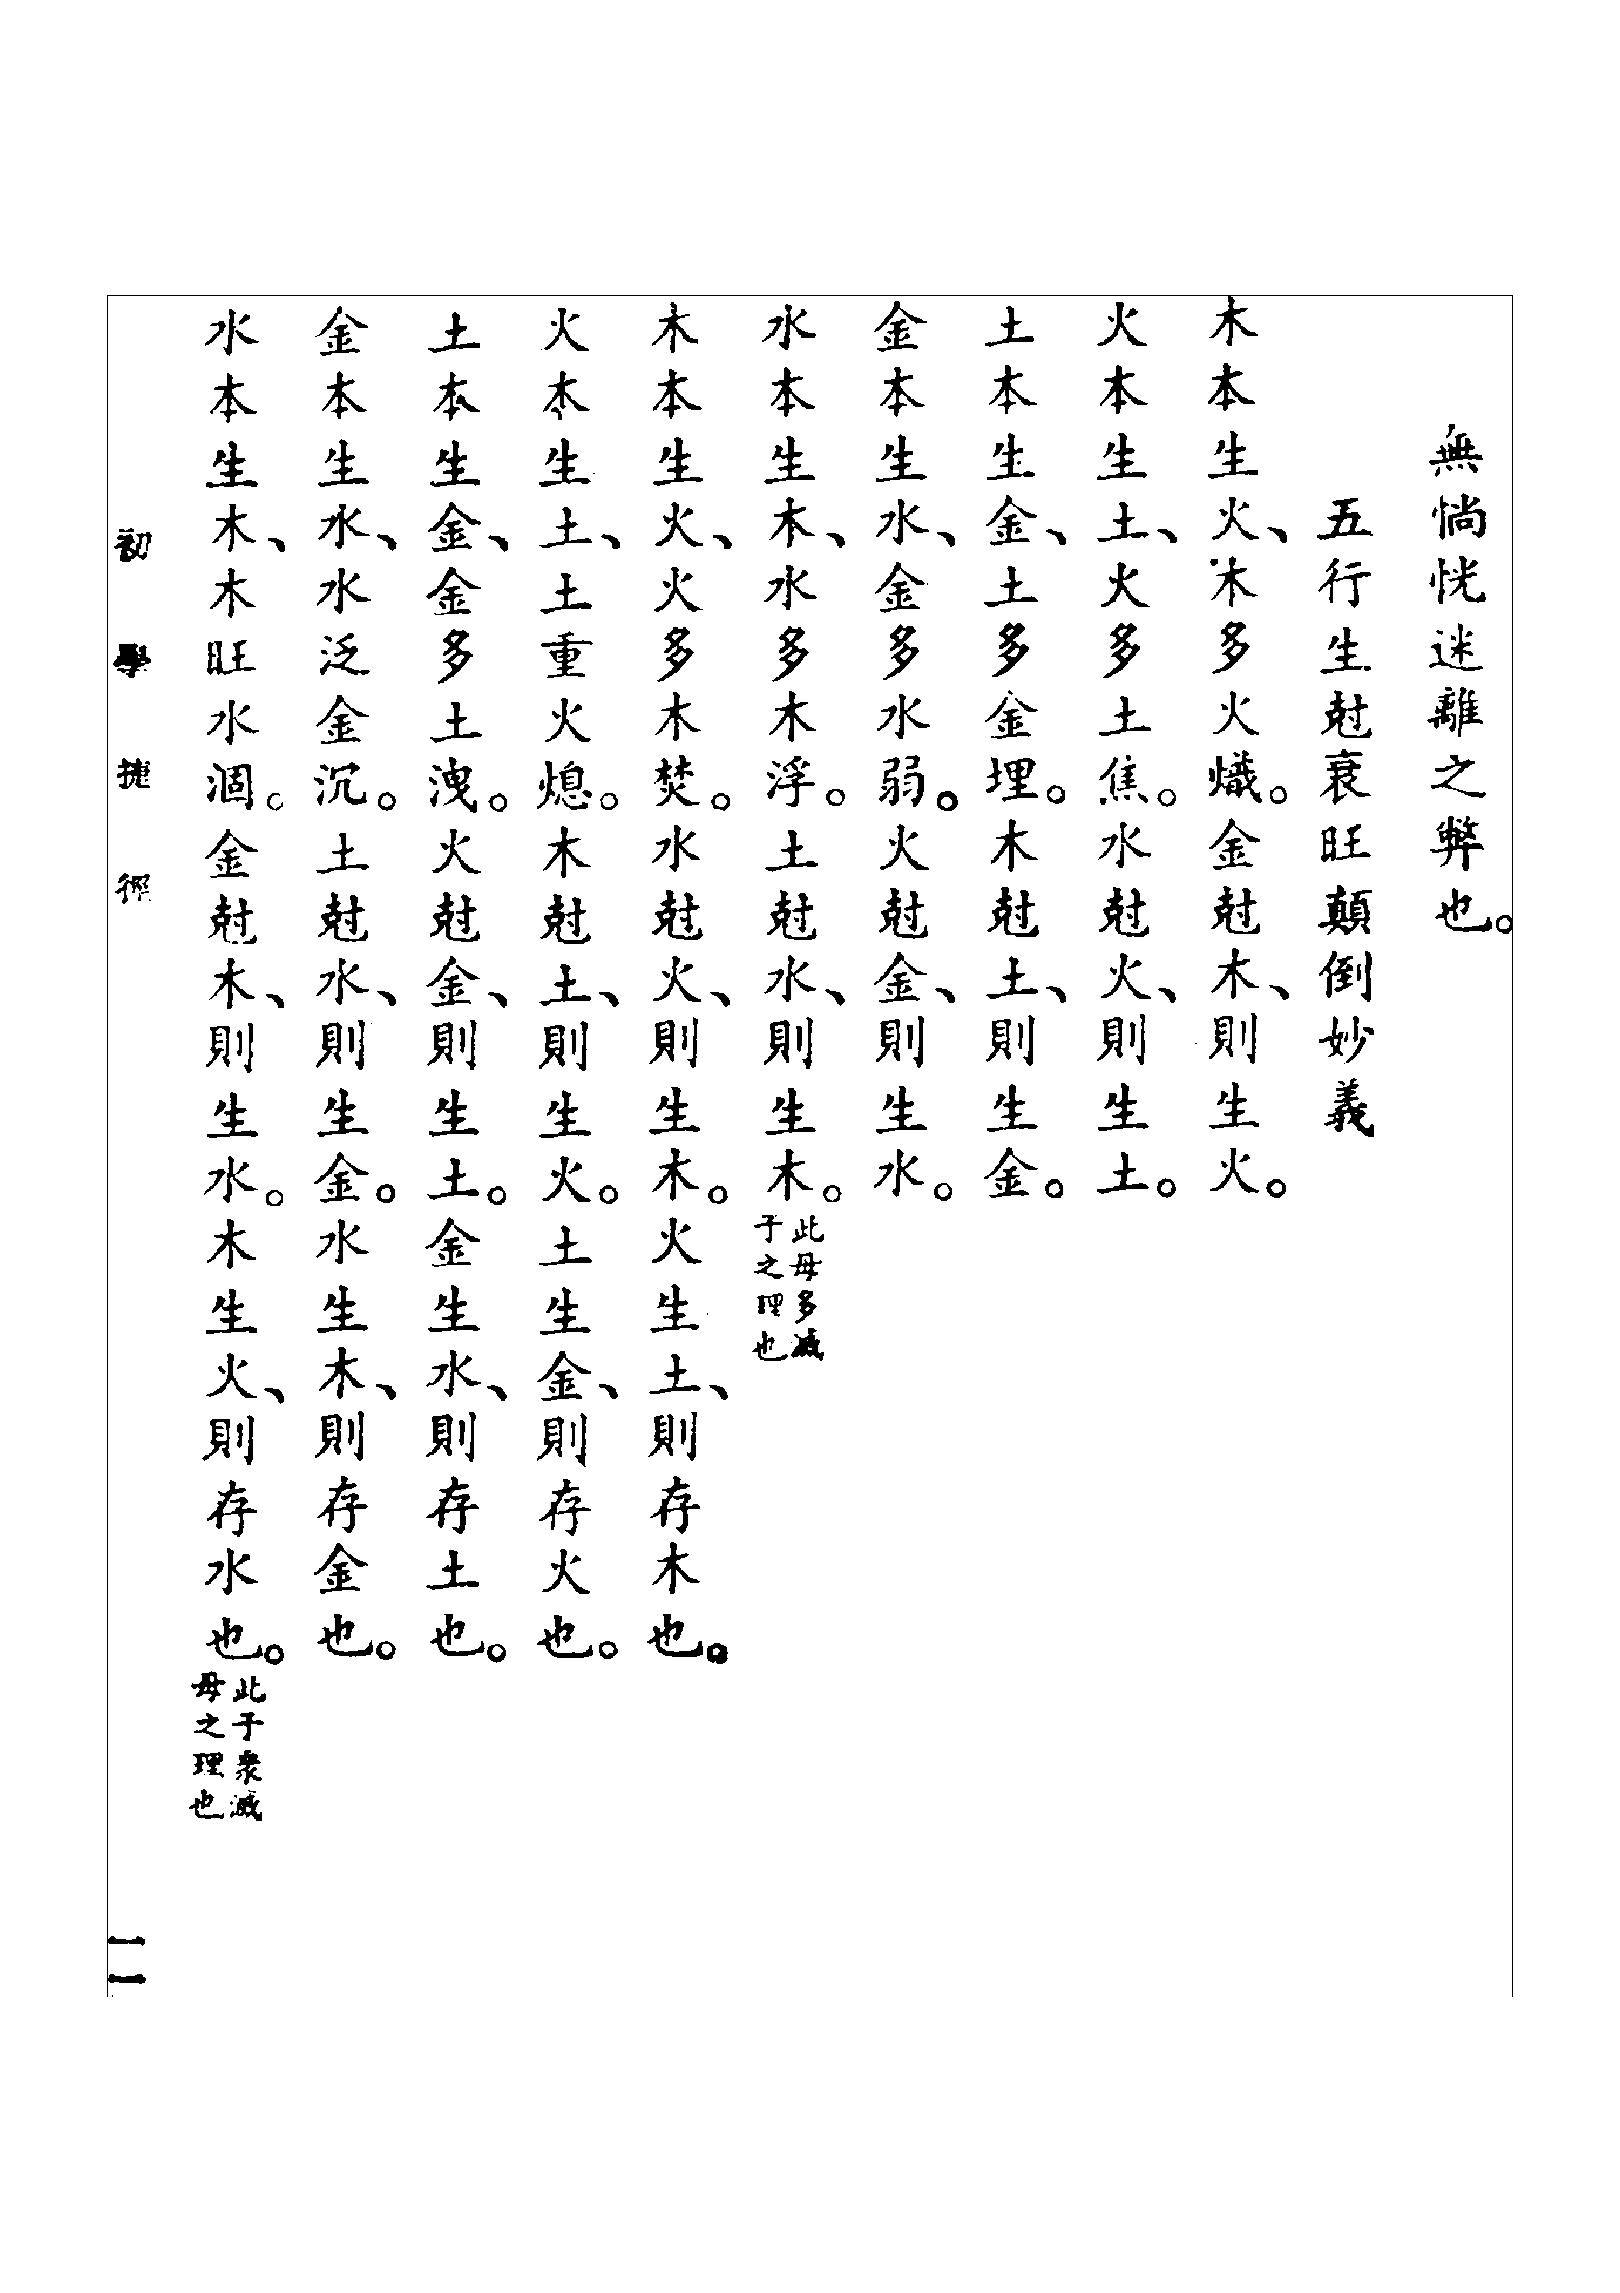 無惝恍迷離之弊也。
五行生尅衰旺顛倒妙義
木本生火、木多火熾。金尅木、則生火。
火本生土、火多土焦。水尅火、則生土。
土本生金、土多金埋。木尅土、則生金。
金本生水、金多水弱。火尅金、則生水。
水本生木、水多木浮。土尅水、則生木。
此母多滅
子之理也
木本生火、火多木焚。水尅火、則生木。火生土、則存木也。
火本生土、土重火熄。木尅土、則生火。土生金、則存火也。
土本生金、金多土洩。火尅金、則生土。金生水、則存土也。
金本生水、水泛金沉。土尅水、則生金。水生木、則存金也。
水本生木、木旺水涸。金尅木、則生水。木生火、則存水也。
此子衆滅
母之理也
初學捷徑
一一